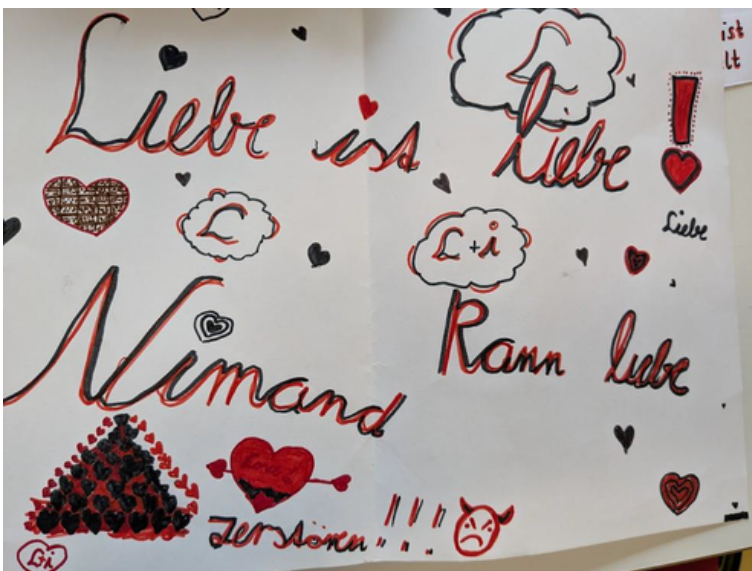 ist
lt
L
Liebe ist Liebe!
Liebe
L
L+i
Nimand Kann liebe
Zerstören!!!!
L+i